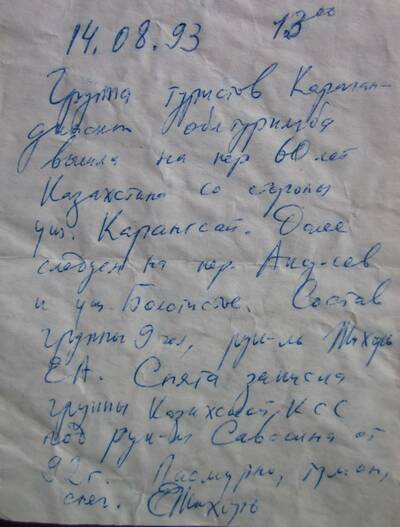 14.08.93 13⁰⁰
Группа туристов Караган-
динского облтурклуба
вышла на пер. 60 лет
Казахстана со стороны
ущ. Каранксай. Далее
следуем на пер.
и ущ. Болотистое. Состав
группы 9 чел, рук-ль Тихорь
Е.А. Снята записка
группы КСС
под рук-м Савосина от
92 г. Пасмурно, туман,
снег. ЕТихорь